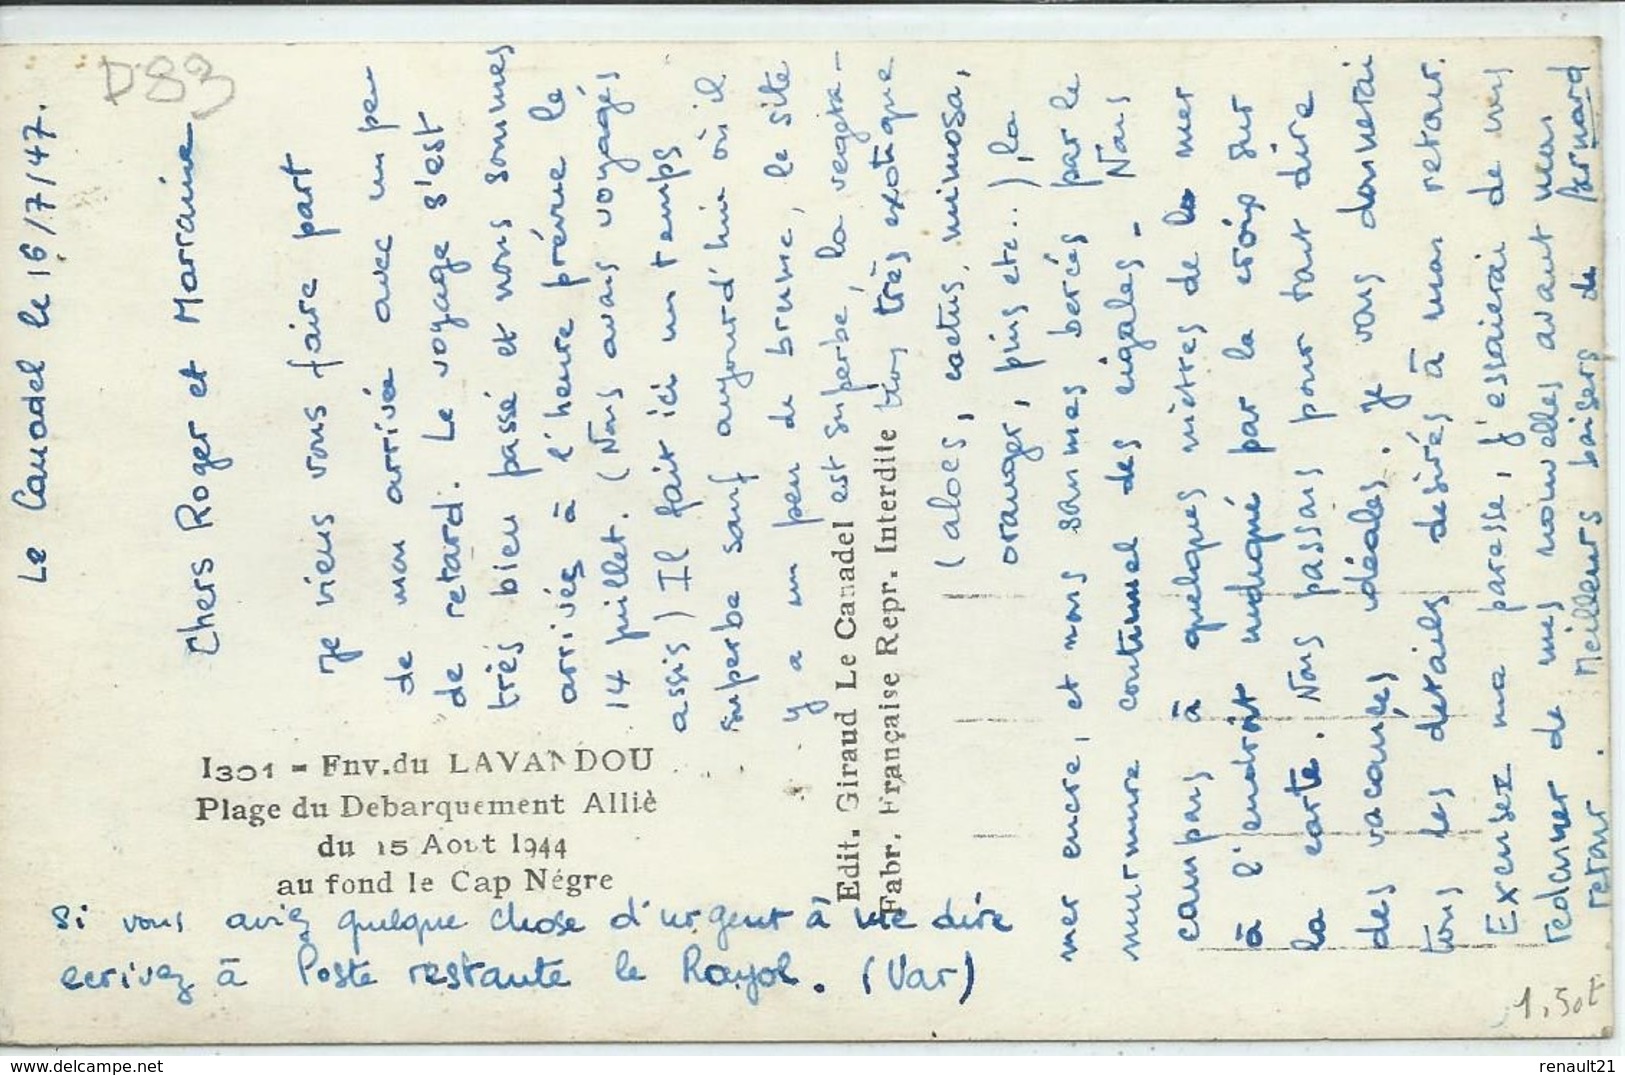 D83
Le Canadel le 16/7/47.
Chers Roger et Marraine
Je viens vous faire part
de mon arrivée avec un peu
de retard. Le voyage s'est
très bien passé et nous sommes
arrivés à l'heure prévue le
14 juillet. (Nous avons voyagés
assis) Il fait ici un temps
superbe sauf aujourd'hui où il
y a un peu de brume, le site
est superbe, la vegeta-
tion très exotique
(aloes, cactus, mimosa,
oranger, pins etc..), la
mer encre, et nous sommes bercés par le
murmure continuel des cigales - Nous
campons à quelques mètres de la mer
à l'endroit indiqué par la croix sur
la carte. Nous passons pour tout dire
des vacances idéales. Je vous donnerai
tous les détails désirés à mon retour.
Excusez ma paresse, j'essaierai de vous
redonner de mes nouvelles avant mon
retour. Meilleurs baisers de Armand
I301 - Env. du LAVANDOU
Plage du Debarquement Alliè
du 15 Aout 1944
au fond le Cap Négre
Edit. Giraud Le Canadel
Fabr. Française Repr. Interdite
Si vous aviez quelque chose d'urgent à me dire
ecrivez à Poste restante le Rayol. (Var)
1,50t
renault21